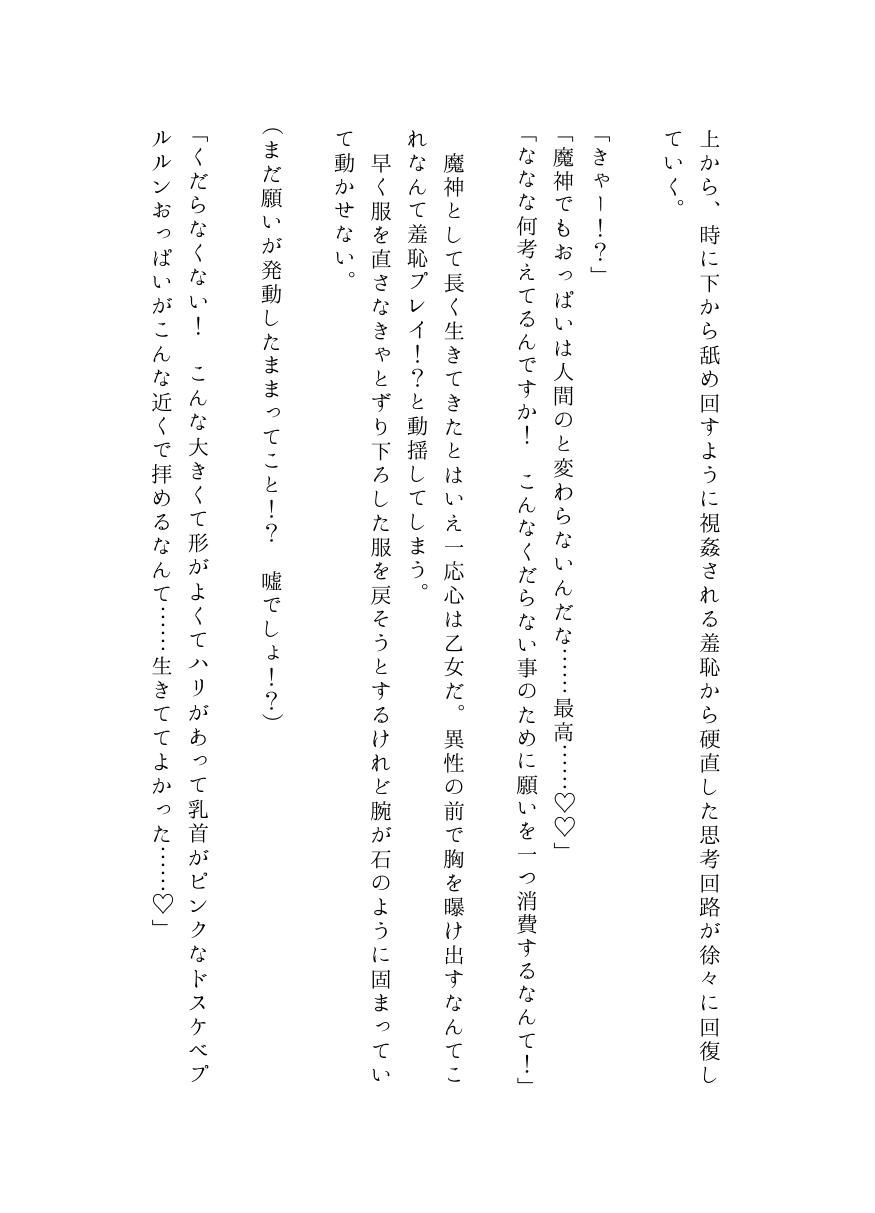 上から、時に下から舐め回すように視姦される羞恥から硬直した思考回路が徐々に回復し
ていく。
「きゃー！？」
「魔神でもおっぱいは人間のと変わらないんだな……最高……♡♡」
「ななな何考えてるんですか！　こんなくだらない事のために願いを一つ消費するなんて！」
　魔神として長く生きてきたとはいえ一応心は乙女だ。異性の前で胸を曝け出すなんてこ
れなんて羞恥プレイ！？と動揺してしまう。
　早く服を直さなきゃとずり下ろした服を戻そうとするけれど腕が石のように固まってい
て動かせない。
（まだ願いが発動したままってこと！？　嘘でしょ！？）
「くだらなくない！　こんな大きくて形がよくてハリがあって乳首がピンクなドスケベプ
ルルンおっぱいがこんな近くで拝めるなんて……生きててよかった……♡」